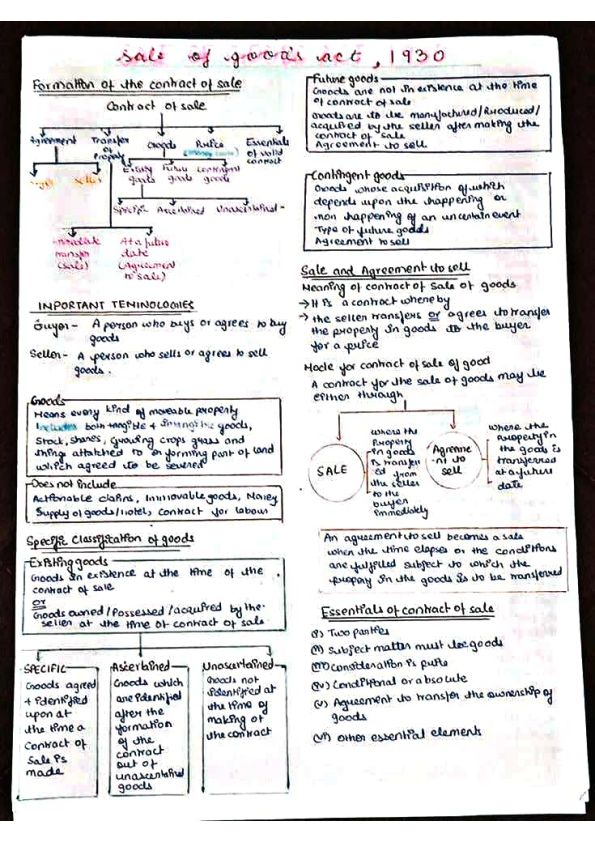 Sale of goods act, 1930
Formation of the contract of sale
Contract of sale
Agreement
Transfer of Property
Goods
Price
Essentials of valid contract
seller
Future goods
Contingent goods
Specific
Ascertained
Unascertained
Immediate transfer (sale)
At a future date (Agreement to sale)
INPORTANT TEMINOLOGIES
Buyer - A person who buys or agrees to buy
goods
Seller - A person who sells or agree to sell
goods.
Goods
Means every kind of moveable property
Includes both tangible & intangible goods,
Stock, shares, Growing crops grass and
things attached to or forming part of land
which agreed to be severed
Does not include
Actionable claims, Immovable goods, Money
Supply of goods/Hotel, contract for labour
Specific Classification of goods
Existing goods
Goods in existence at the time of the
contract of sale
or
Goods owned/Possessed/acquired by the
seller at the time of contract of sale
SPECIFIC
Goods agreed
& identified
upon at
the time a
contract of
sale is
made
Ascertained
Goods which
are identified
after the
formation
of the
contract
out of
unascertained
goods
Unascertained
Goods not
identified at
the time of
making of
the contract
Future goods
Goods are not in existence at the time
of contract of sale
Goods are to be manufactured/Produced/
acquired by the seller after making the
contract of sale
Agreement to sell
Contingent goods
Goods whose acquisition of which
depends upon the happening or
non happening of an uncertain event
Type of future goods
Agreement to sell
Sale and Agreement to sell
Meaning of contract of Sale of goods
→ It is a contract whereby
→ the seller transfers or agrees to transfer
the property in goods to the buyer
for a price
Mode for contract of sale of good
A contract for the sale of goods may be
either through
SALE
where the
Property
in goods
is transfer
ed from
the seller
to the
buyer
immediately
Agreeme
nt to
sell
where the
property in
the goods is
transferred
at a future
date
An agreement to sell becomes a sale
when the time elapses or the conditions
are fulfilled subject to which the
propery in the goods is to be transferred
Essentials of contract of sale
(i) Two parties
(ii) Subject matter must be goods
(iii) Consideration is price
(iv) Conditional or absolute
(v) Agreement to transfer the ownership of
goods
(vi) Other essential elements